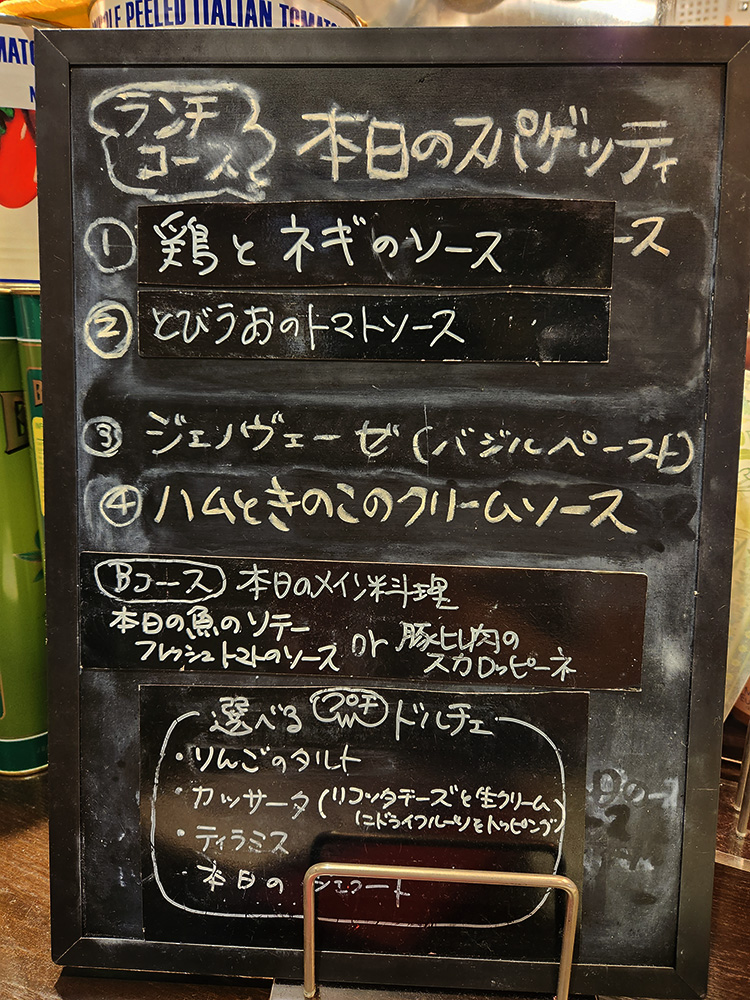 PEELED ITALIAN TOMATO
ランチ
コース
本日のスパゲッティ
① 鶏とネギのソース
ース
② とびうおのトマトソース
③ ジェノヴェーゼ(バジルペースト)
④ ハムときのこのクリームソース
Bコース 本日のメイン料理
本日の魚のソテー
フレッシュトマトのソース or 豚ヒレ肉の
スカロッピーネ
選べる プチ ドルチェ
・りんごのタルト
・カッサータ(リコッタチーズと生クリーム
にドライフルーツをトッピング)
・ティラミス
・本日の